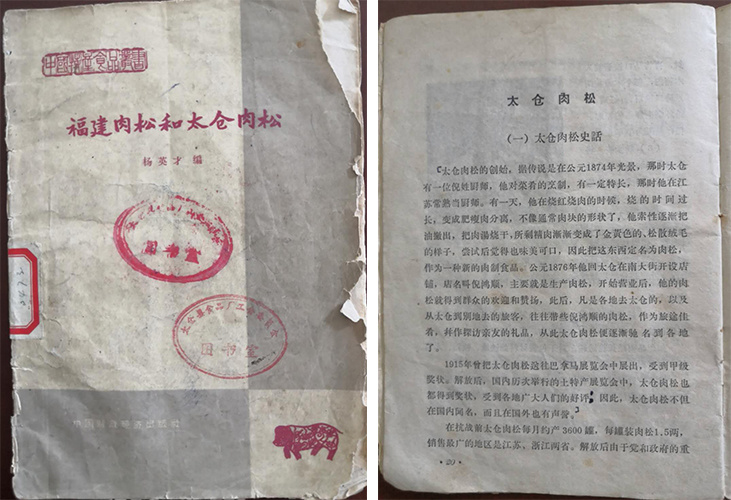 中國輕工食品叢書
福建肉松和太仓肉松
杨英才 编
图书室
图书室
太仓肉松
（一）太仓肉松史話
太仓肉松的創始，据传說是在公元1874年光景，那时太仓
有一位倪姓厨师，他对菜肴的烹制，有一定特长，那时他在江
苏常熟当厨师。有一天，他在烧紅烧肉的时候，烧的时间过
长，变成肥瘦肉分离，不像通常肉块的形状了，他索性逐渐把
油撇出，把肉湯烧干，所剩精肉漸漸变成了金黄色的、松散絨毛
的样子，尝試后觉得也味美可口，因此把这东西定名为肉松，
作为一种新的肉制食品。公元1876年他回太仓在南大街开設店
鋪，店名叫倪鴻順，主要就是生产肉松，开始营业后，他的肉
松就得到群众的欢迎和赞扬，此后，凡是各地去太仓的，以及
从太仓到別地去的旅客，往往带些倪鴻順的肉松，作为旅途佳
肴，幷作探訪亲友的礼品，从此太仓肉松便逐漸馳名到各地
了。
1915年曾把太仓肉松送往巴拿马展覽会中展出，受到甲級
奖状。解放后，国内历次举行的土特产展覽会中，太仓肉松也
都得到奖状，受到各地广大人们的好評，因此，太仓肉松不但
在国内闻名，而且在国外也有声誉。
在抗战前太仓肉松每月約产3600罐，每罐装肉松1.5两，
销售最广的地区是江苏、浙江两省。解放后由于党和政府的重
·20·